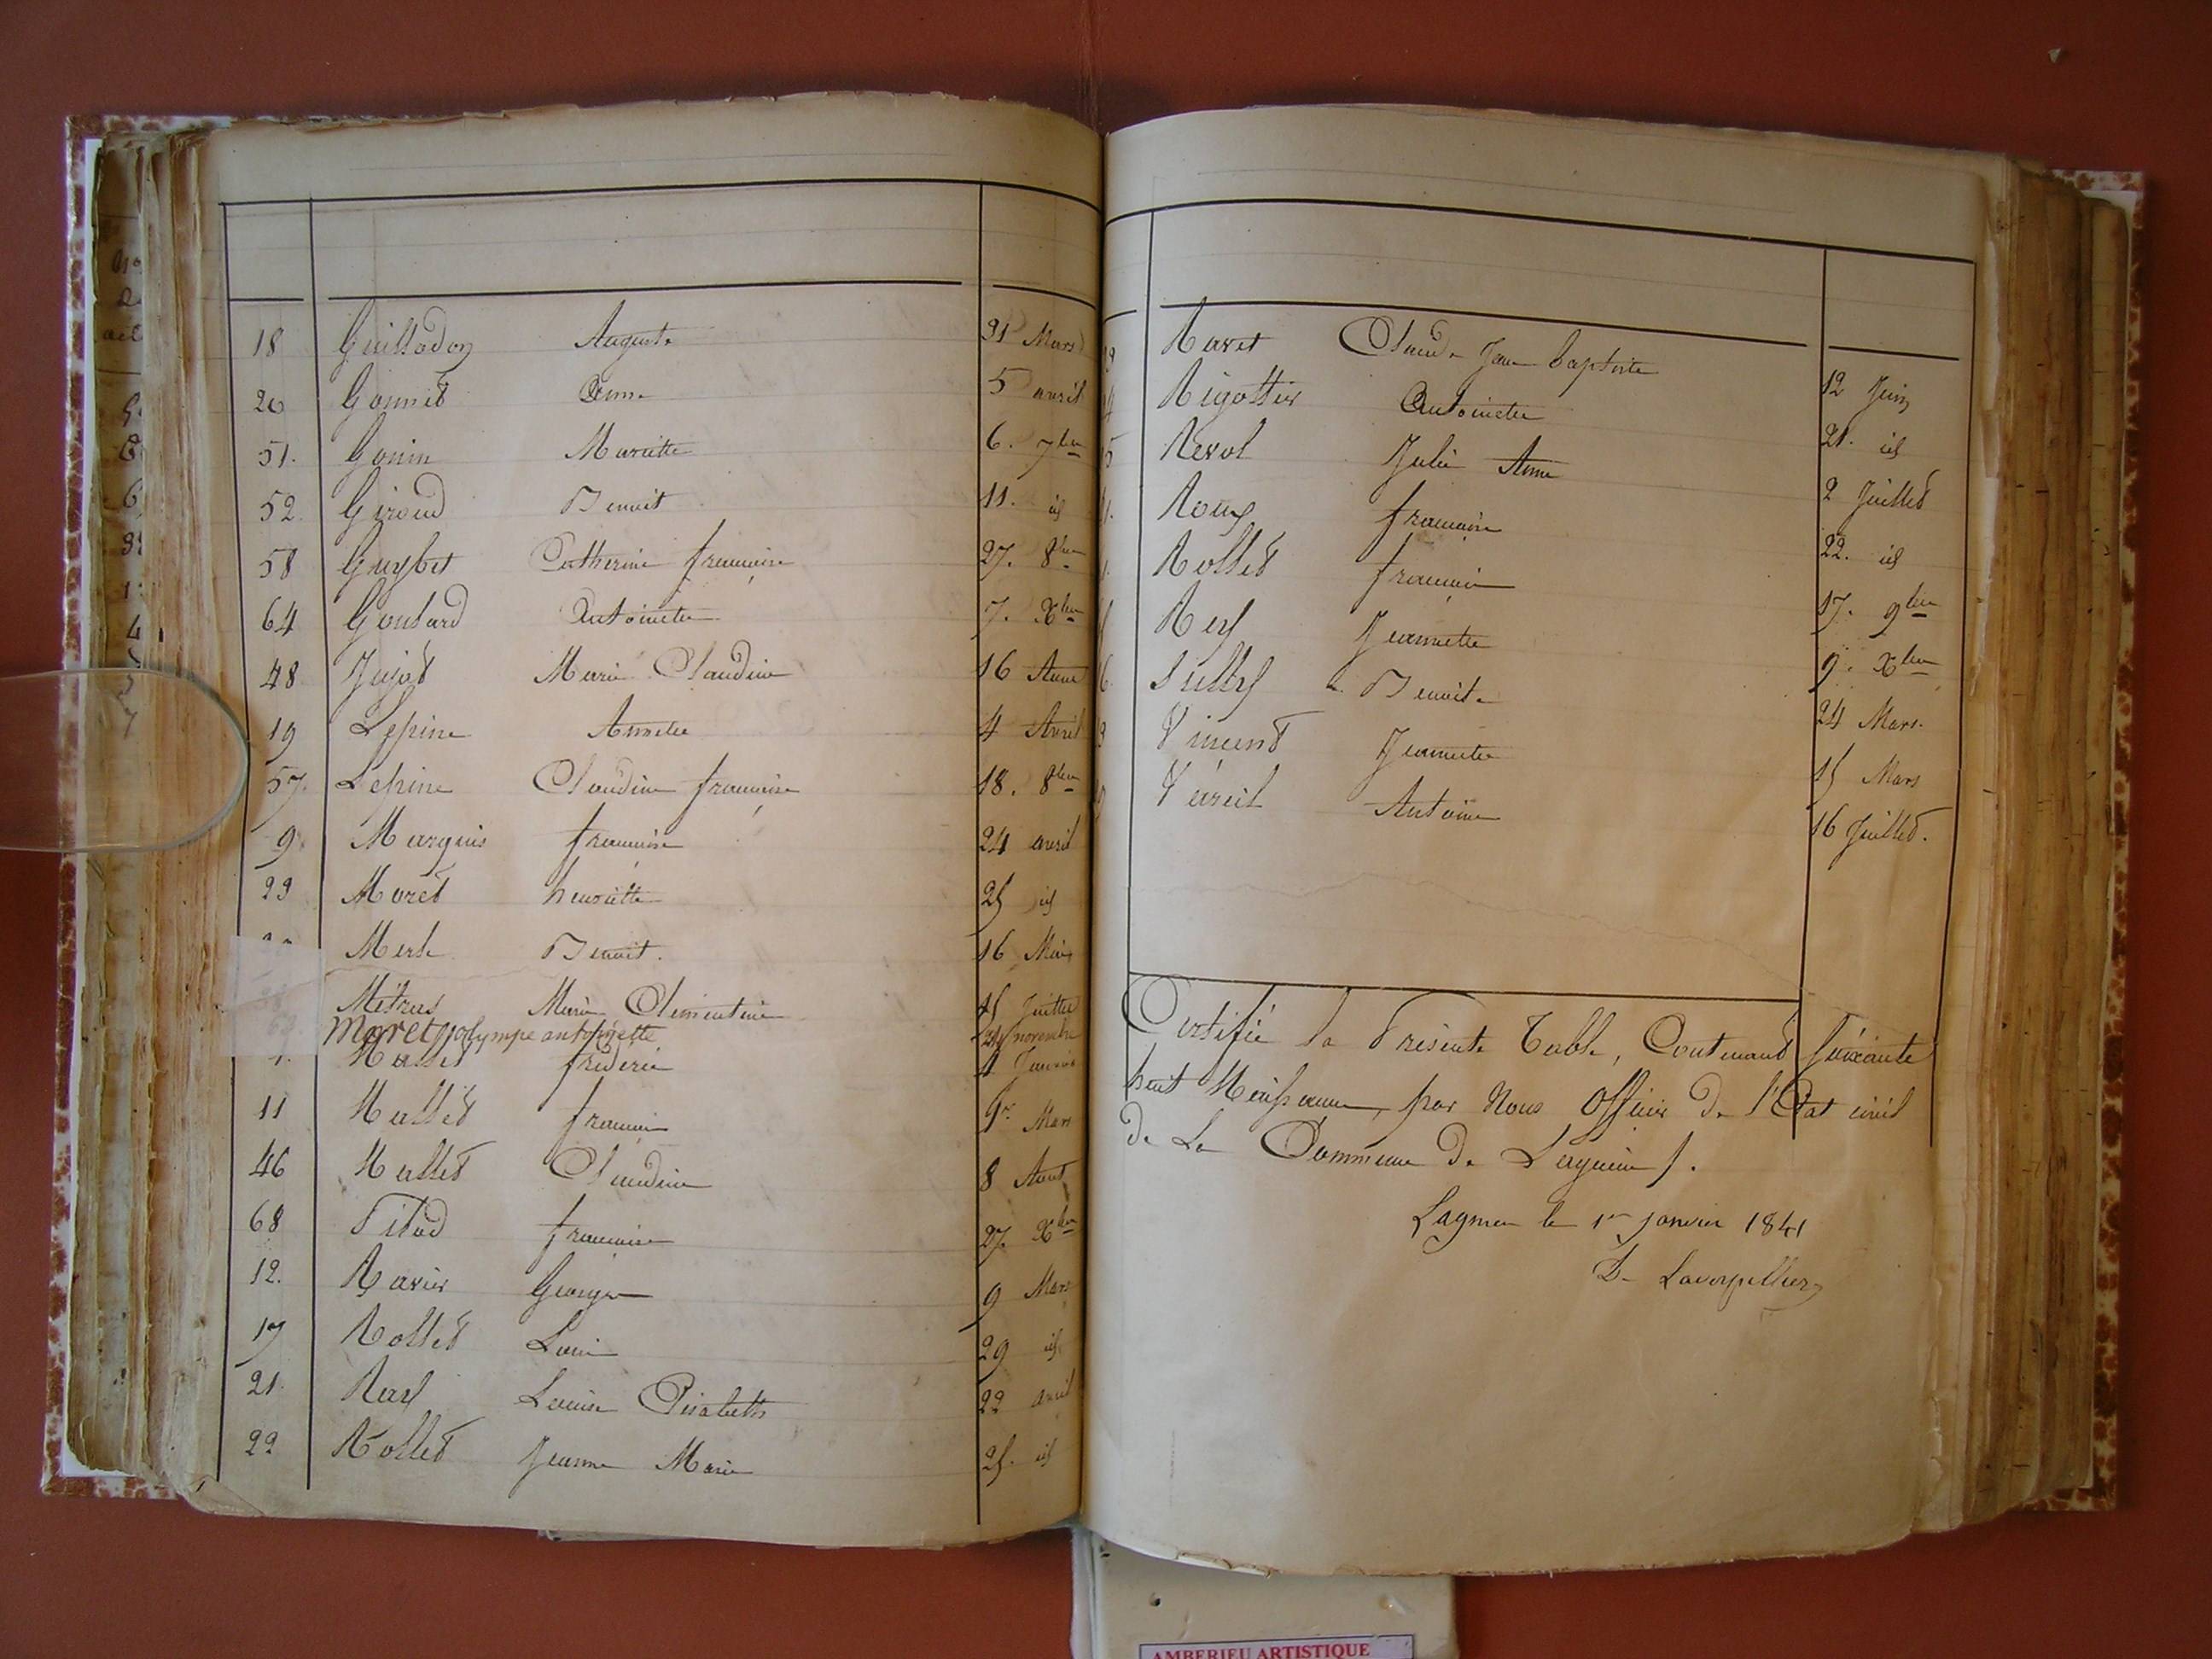 18 Guilladon Auguste 31 Mars
20 Gonnet Anne 5 avril
51. Gonin Mariette 6. 7bre
52. Giroud Benoit 11. id
58 Guybet Catherine françoise 27. 8bre
64 Goutard Antoinette 7. Xbre
48 Jujat Marie Claudine 16 Aout
19 Lépine Annette 4 Avril
57. Lépine Claudine françoise 18. 8bre
9. Marquis françoise 24 avril
23 Moret henriette 25 id
Merle Benoit. 16 Mai
Métras Marie Clémentine 15 Juillet
Moret olympe antoinette novembre
frédéric 4 Janvier
11 Nallet françois 1er Mars
46 Nallet Claudine 8 Aout
68 Pitod françoise 27. Xbre
12. Ravier George 9 Mars
17 Rollet Louis 29 id
21. Rey Louise Elisabeth 22 avril
22 Rollet Jeanne Marie 25. id
Ravet Claude Jean baptiste 12 Juin
Rigottier Antoinette 21. id
Revol Julie Anne 2 Juillet
Roux françoise 22. id
Rollet françois 17. 9bre
Rey Jeannette 9. Xbre
Benoite 24 Mars.
Vincent Jeannette 15 Mars
Antoine 16 Juillet.
Certifié la Présente Table, Contenant Soixante
huit Naissances, par Nous Officier De l'Etat civil
De La Commune De Lagnieu.
Lagnieu le 1er janvier 1841
AMBERIEU ARTISTIQUE